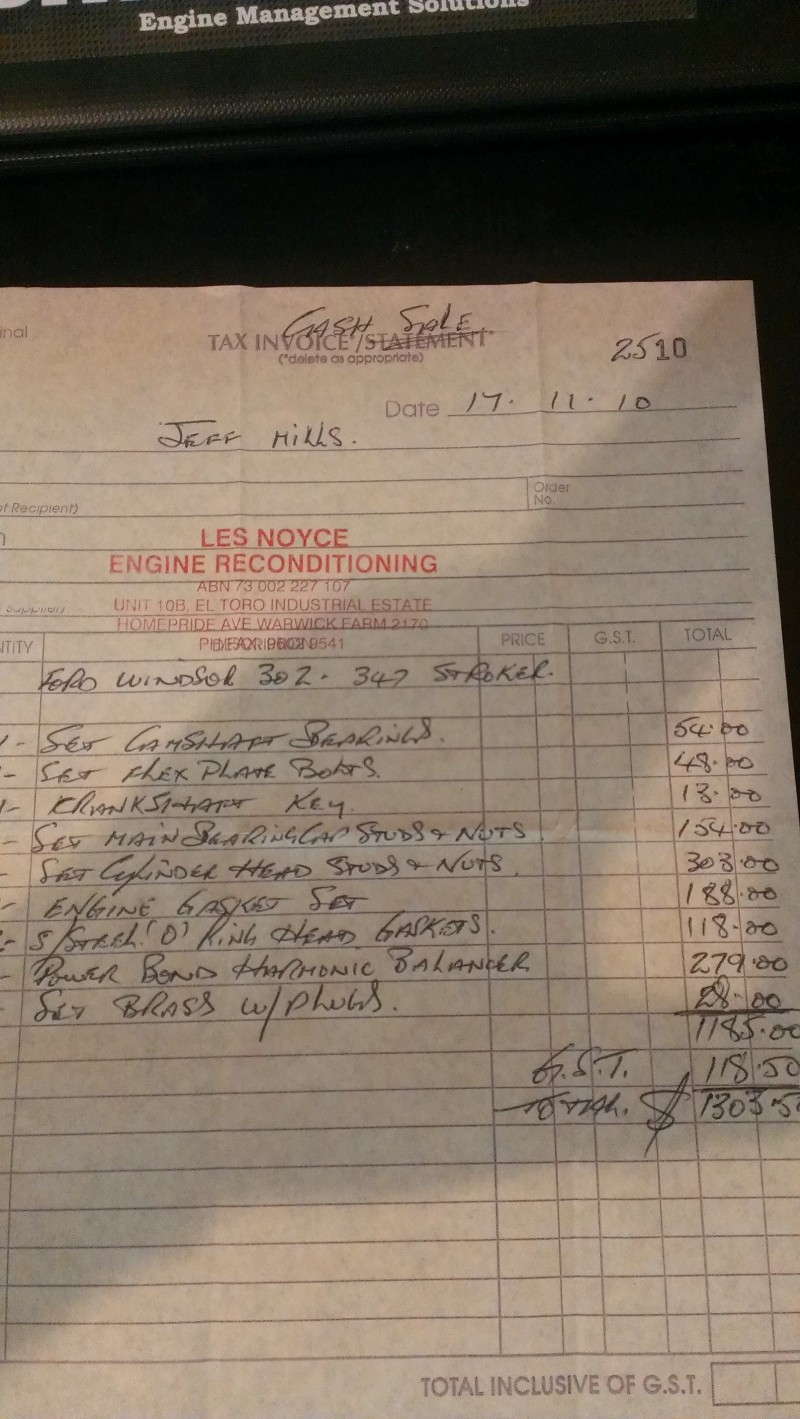 Engine Management Solutions
CASH SALE
inal
TAX INVOICE/STATEMENT
("delete as appropriate)
2510
Date 17. 11. 10
JEFF MILLS.
of Recipient)
Order
No.
LES NOYCE
ENGINE RECONDITIONING
ABN 73 002 227 107
UNIT 10B, EL TORO INDUSTRIAL ESTATE
HOMEPRIDE AVE WARWICK FARM 2170
9541
NTITY PRICE G.S.T. TOTAL
FORD WINDSOR 302. 347 STROKER.
1- SET CAMSHAFT BEARINGS. 54.00
- SET FLEX PLATE BOLTS. 48.00
1- KRANKSHAFT KEY. 13.00
- SET MAIN BEARING CAP STUDS & NUTS 154.00
- SET CYLINDER HEAD STUDS & NUTS. 303.00
- ENGINE GASKET SET 188.00
- S/STEEL 'O' RING HEAD GASKETS. 118.00
- POWER BOND HARMONIC BALANCER 279.00
- SET BRASS W/PLUGS. 28.00
1185.00
G.S.T. 118.50
TOTAL. $ 1303.5
TOTAL INCLUSIVE OF G.S.T.